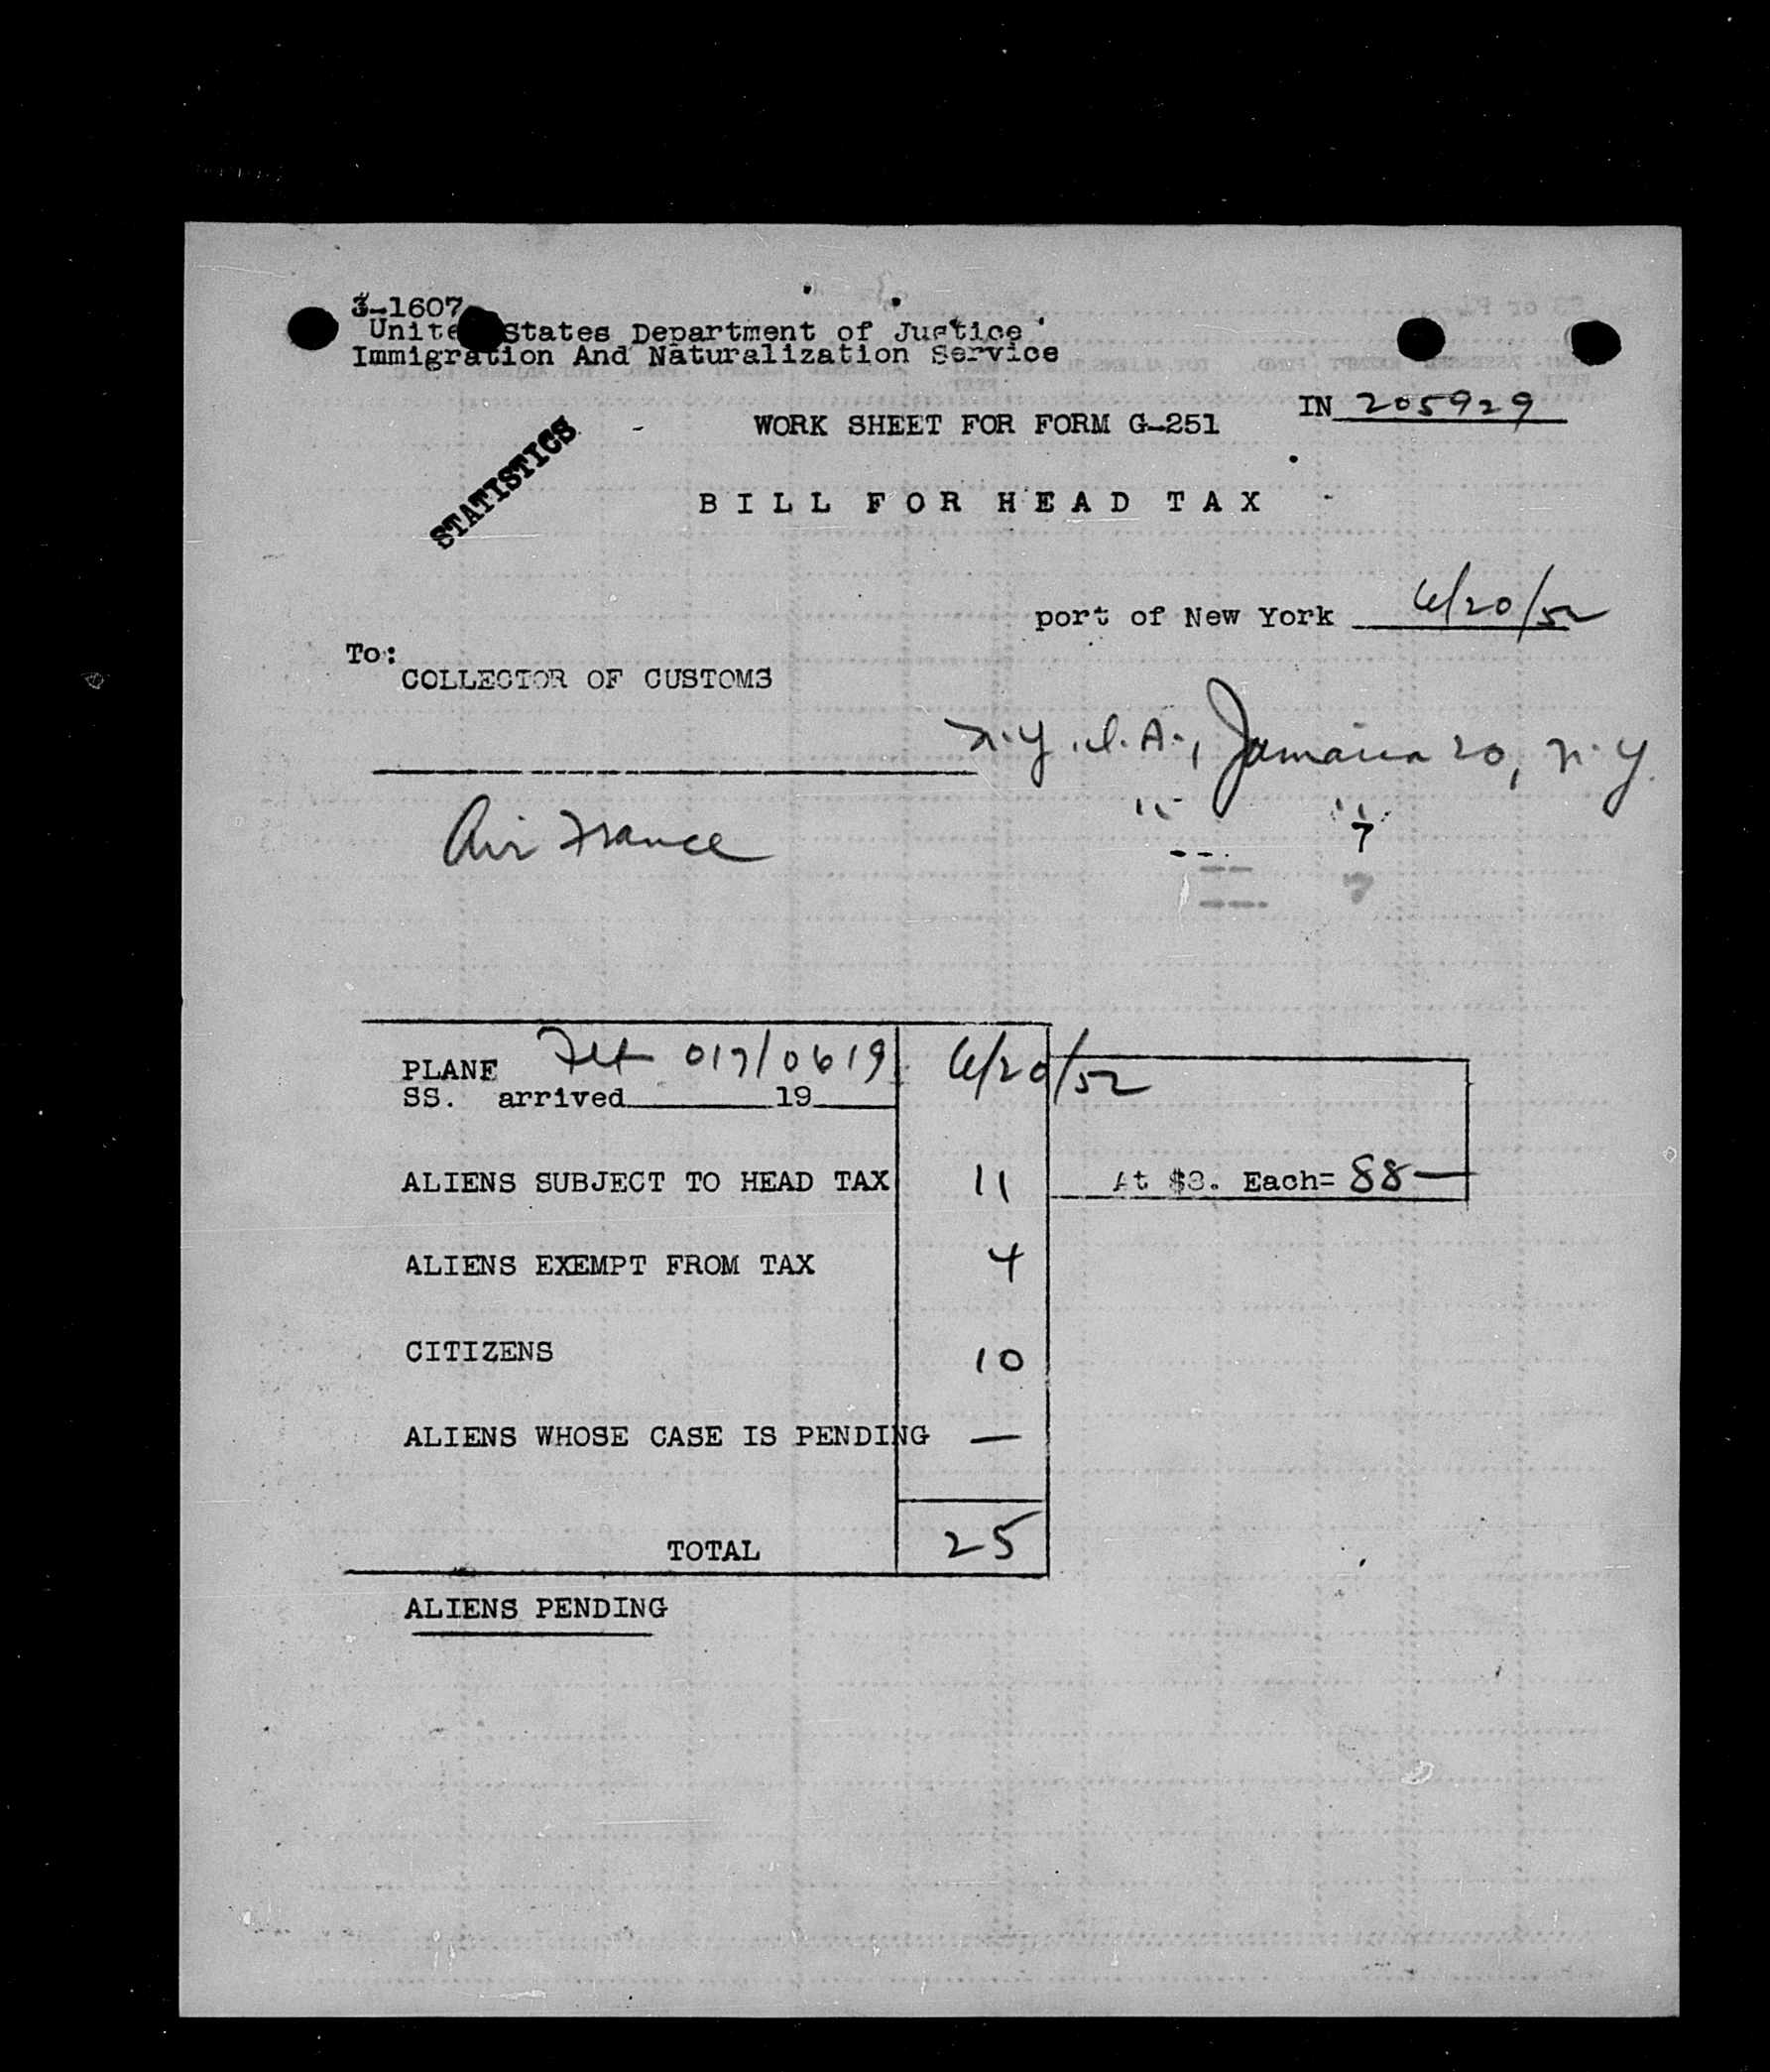 3-1607
United States Department of Justice
Immigration And Naturalization Service
IN 205929
WORK SHEET FOR FORM G-251
STATISTICS
BILL FOR HEAD TAX
port of New York 6/20/52
To:
COLLECTOR OF CUSTOMS
N.Y.I.A., Jamaica 20, N.Y.
" "
Air France
PLANE Flt 017/0619 6/20/52
SS. arrived 19
ALIENS SUBJECT TO HEAD TAX 11 At $8. Each= 88—
ALIENS EXEMPT FROM TAX 4
CITIZENS 10
ALIENS WHOSE CASE IS PENDING —
TOTAL 25
ALIENS PENDING